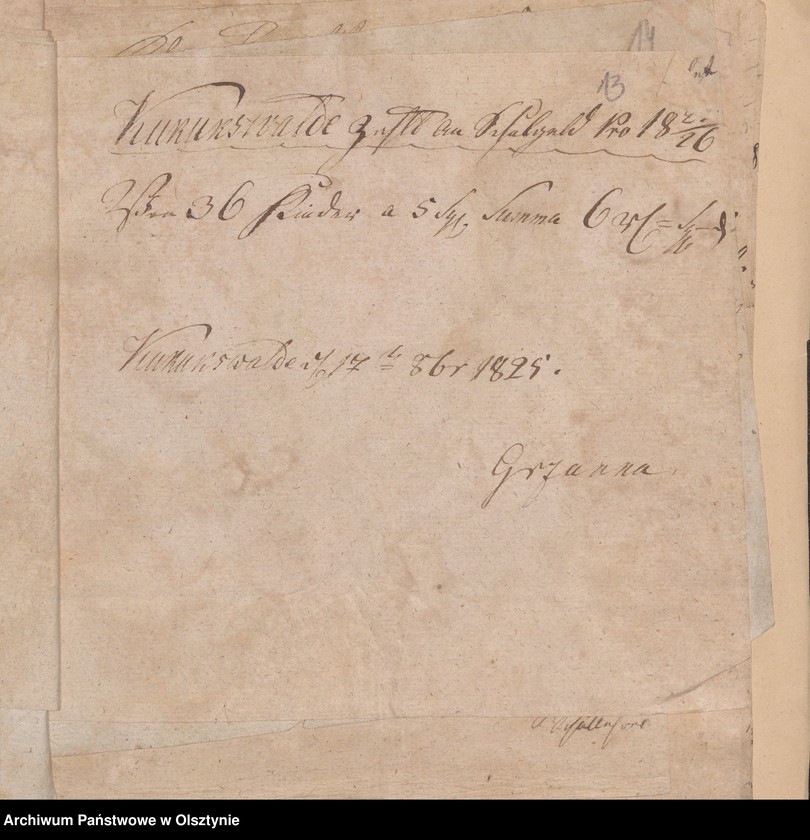 14
13
Kukukswalde zahlt an Schulgeld Pro 18 2./26
Von 36 Kinder a 5 Sgr. Summa 6 rl = Sgr — d
Kukukswalde d 17 t 8br 1825.
Grzanna
Archiwum Państwowe w Olsztynie